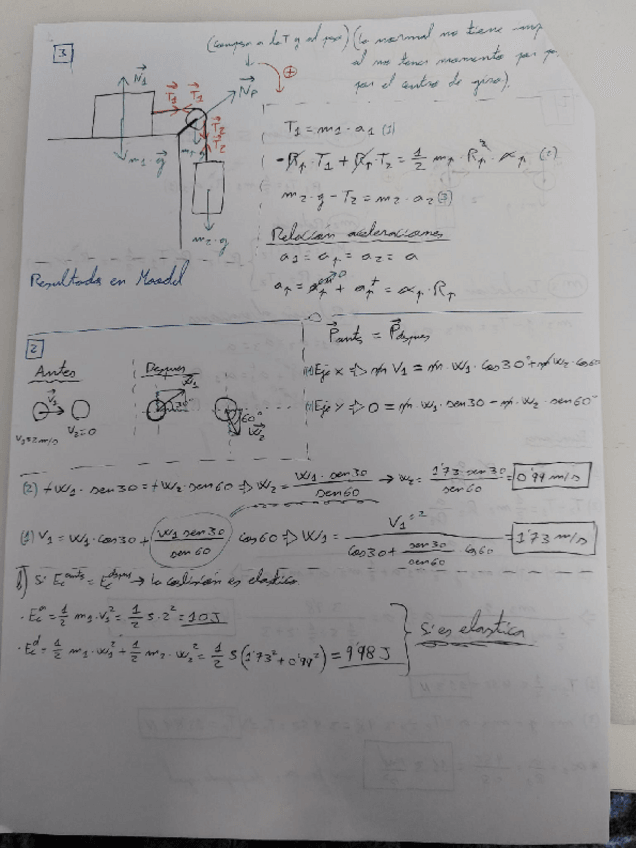 3
(compensa de T y al peso) (la normal no tiene
al no tener momento por
por el centro de giro).
N1 T1 T1 NP +
T2
T2
m1·g
m2·g
T1 = m1·a1 (1)
-Rp·T1 + Rp·T2 = 1/2 mp·Rp²·αp (2)
m2·g - T2 = m2·a2 (3)
Relación aceleraciones
a1 = ap = a2 = a
ap = + ap^t = αp·Rp
Resultados en Moodel
2
Antes
V1
V1=2m/s V2=0
Despues
W1
30°
60°
W2
Pantes = Pdespues
(1) Eje x ⇒ m V1 = m·W1·cos30° + m W2·cos60
(2) Eje y ⇒ 0 = m·W1·sen30 - m·W2·sen60°
(2) +W1·sen30 = +W2·sen60 ⇒ W2 = W1·sen30/sen60 → W2 = 1'73·sen30/sen60 = 0'99 m/s
(1) V1 = W1·cos30 + W1 sen30/sen60 cos60 ⇒ W1 = V1=2/(cos30 + sen30/sen60 cos60) = 1'73 m/s
b) Si Ec^antes = Ec^despues → la colision es elastica
·Ec^a = 1/2 m1·V1² = 1/2 5·2² = 10J
·Ec^d = 1/2 m1·W1² + 1/2 m2·W2² = 1/2 5(1'73² + 0'99²) = 9'98 J
Si es elastica